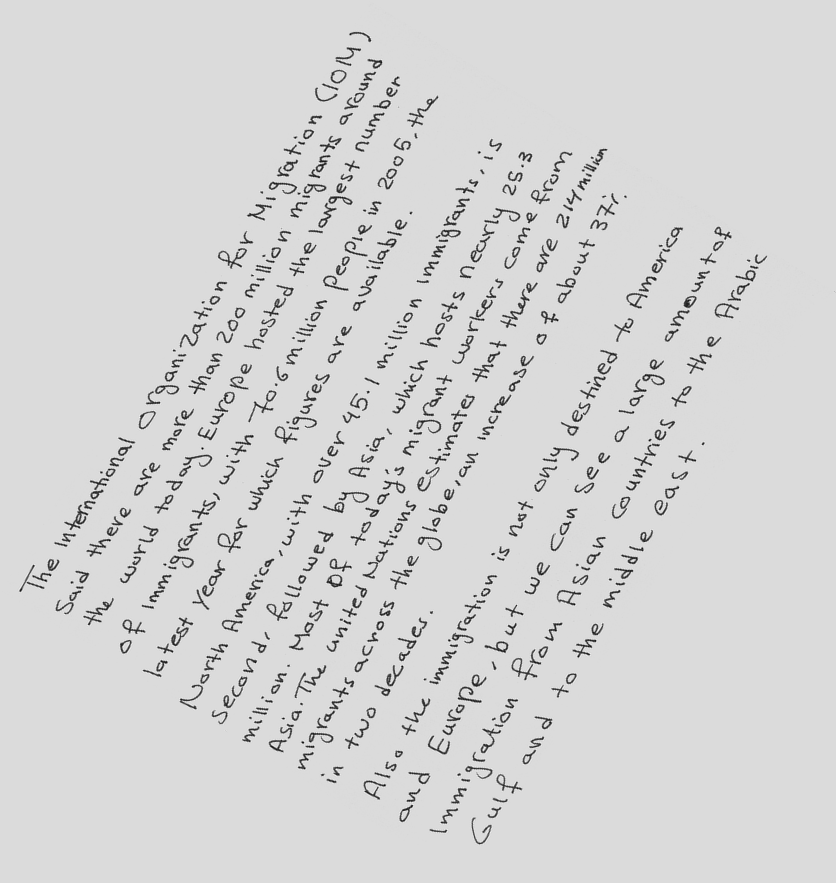 The International Organization for Migration (IOM)
Said there are more than 200 million migrants around
the world today. Europe hosted the largest number
of Immigrants, with 70.6 million people in 2005, the
latest year for which figures are available.
North America, with over 45.1 million immigrants, is
second, followed by Asia, which hosts nearly 25.3
million. Most of today's migrant workers come from
Asia. The united Nations estimates that there are 214 million
migrants across the globe, an increase of about 37%
in two decades.
Also the immigration is not only destined to America
and Europe, but we can see a large amount of
Immigration from Asian countries to the Arabic
Gulf and to the middle east.